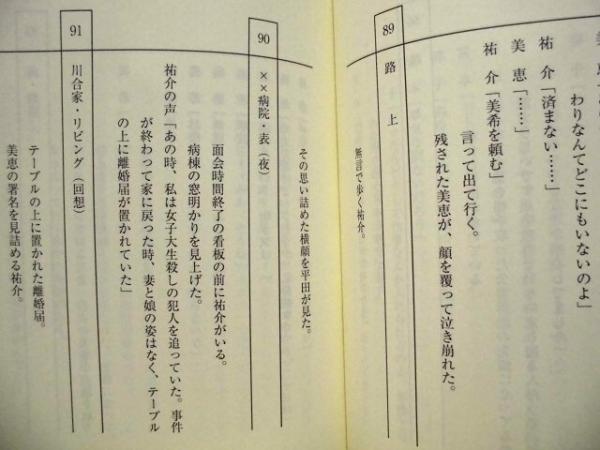 わりなんてどこにもいないのよ」
祐介「済まない……」
美恵「……」
祐介「美希を頼む」
言って出て行く。
残された美恵が、顔を覆って泣き崩れた。
89 路上
無言で歩く祐介。
その思い詰めた横顔を平田が見た。
90 ××病院・表（夜）
面会時間終了の看板の前に祐介がいる。
病棟の窓明かりを見上げた。
祐介の声「あの時、私は女子大生殺しの犯人を追っていた。事件
が終わって家に戻った時、妻と娘の姿はなく、テーブル
の上に離婚届が置かれていた」
91 川合家・リビング（回想）
テーブルの上に置かれた離婚届。
美恵の署名を見詰める祐介。